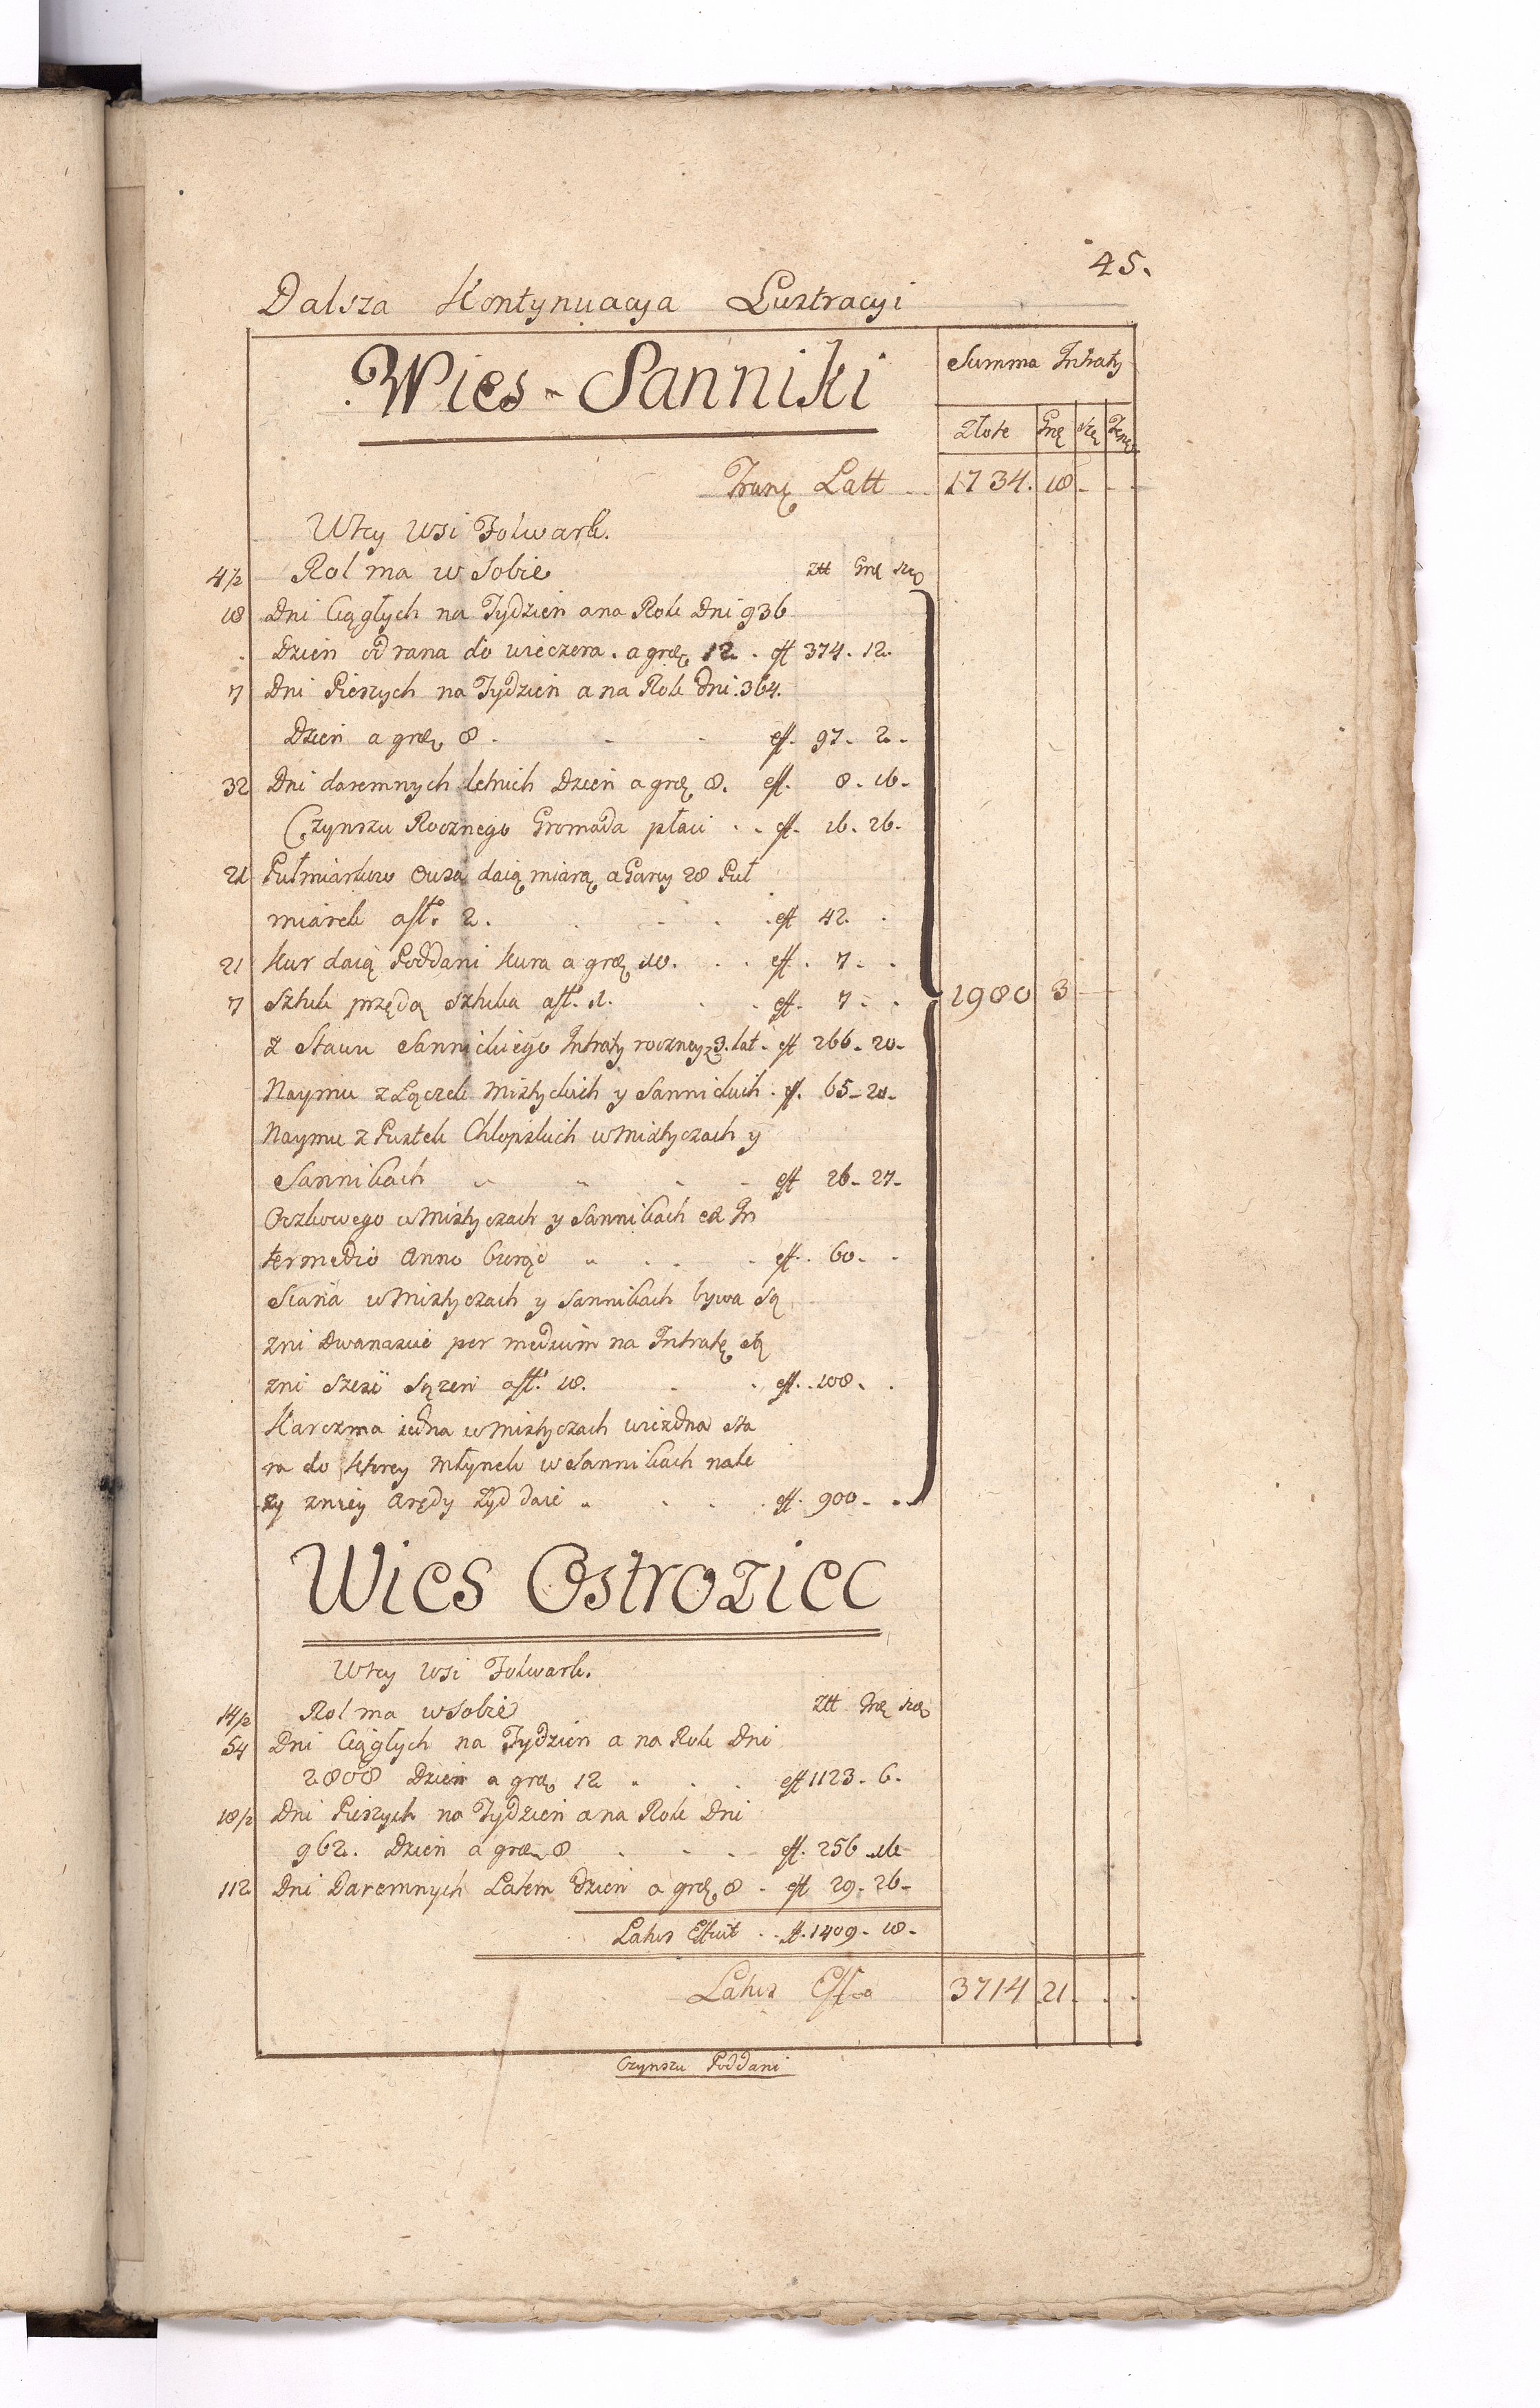 45.
Dalsza Kontynuacya Lustracyi
Wies - Sanniki
Summa Intraty
Złote Grę Szę
Latt 1734. 18 - - -
W tey wsi Folwark.
4/2 Rol ma w Sobie ztt Grę szę
18 Dni Ciągłych na Tydzien a na Rok Dni 936
Dzien od rana do wieczera. a grę 12. eft 374. 12.
7 Dni Pieszych na Tydzien a na Rok Dni. 364.
Dzien a grę 8. - - eff. 97. 2.
32 Dni daremnych letnich Dzien a grę 8. eff. 8. 16.
Czynszu Rocznego Gromada płaci . . eff. 16. 26.
21 Pułmiarkow Owsa daią miarą a Garcy 28 Puł
miarek a ft. 2. . . . eft 42. .
21 Kur daią Poddani Kura a grę 10. . . eff. 7. .
7 Sztuk przędą sztuka a ft. 1. . . eff. 7. .
1980 3
z Stawu Sannickiego Intraty roczney z 3. lat. eft 266. 20.
Naymu z Łączek Mistyckich y Sannickich. ef. 65. 20.
Naymu z Pustek Chłopskich w Mistyczach y
Sannikach eft 26. 27.
Oczkowego w Mistyczach y Sannikach ex In
termedio Anno biorąc . . . eff. 60. .
Siana w Mistyczach y Sannikach bywa Są
zni Dwanascie per medium na Intratę Są
zni szesc Sązen a ft. 18. . . eff. 108. .
Karczma iedna w Mistyczach wiezdna sta
ra do ktorey Młynek w Sannikach nale
zy zniey Arędy Zyd daie . . . eff. 900. .
Wies Ostroziec
W tey wsi Folwark.
14/2 Rol ma w Sobie ztt Grę szę
54 Dni Ciągłych na Tydzien a na Rok Dni
2808 Dzien a grę 12 . . . eft 1123. 6.
18/2 Dni Pieszych na Tydzien a na Rok Dni
962. Dzien a grę 8 . . . eff. 256. 16
112 Dni Daremnych Latem Dzien a grę 8 . eft 29. 26.
Latus Efficit . . ft. 1409. 18.
Latus 3714 21 . . .
Czynszu Poddani